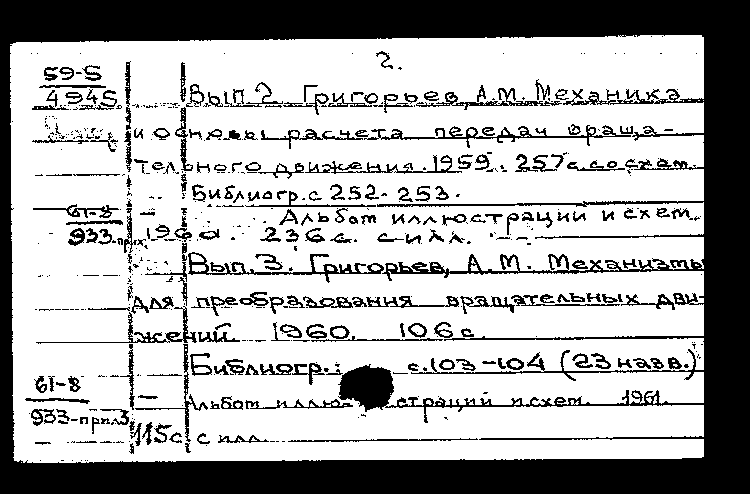 2.
59-5
4945
Вып.2 Григорьев, А.М. Механика
и основы расчета передач враща-
тельного движения. 1959. 257 с. со схем.
Библиогр. с 252-253.
61-8
933-прил.
— Альбом иллюстраций и схем.
1960. 236 с. с илл.
Вып. 3. Григорьев, А. М. Механизмы
для преобразования вращательных дви-
жений. 1960. 106 с.
Библиогр.: с. 103-104 (23 назв.)
61-8
933-прил3
— Альбом иллюстраций и схем. 1961.
115 с. с илл.